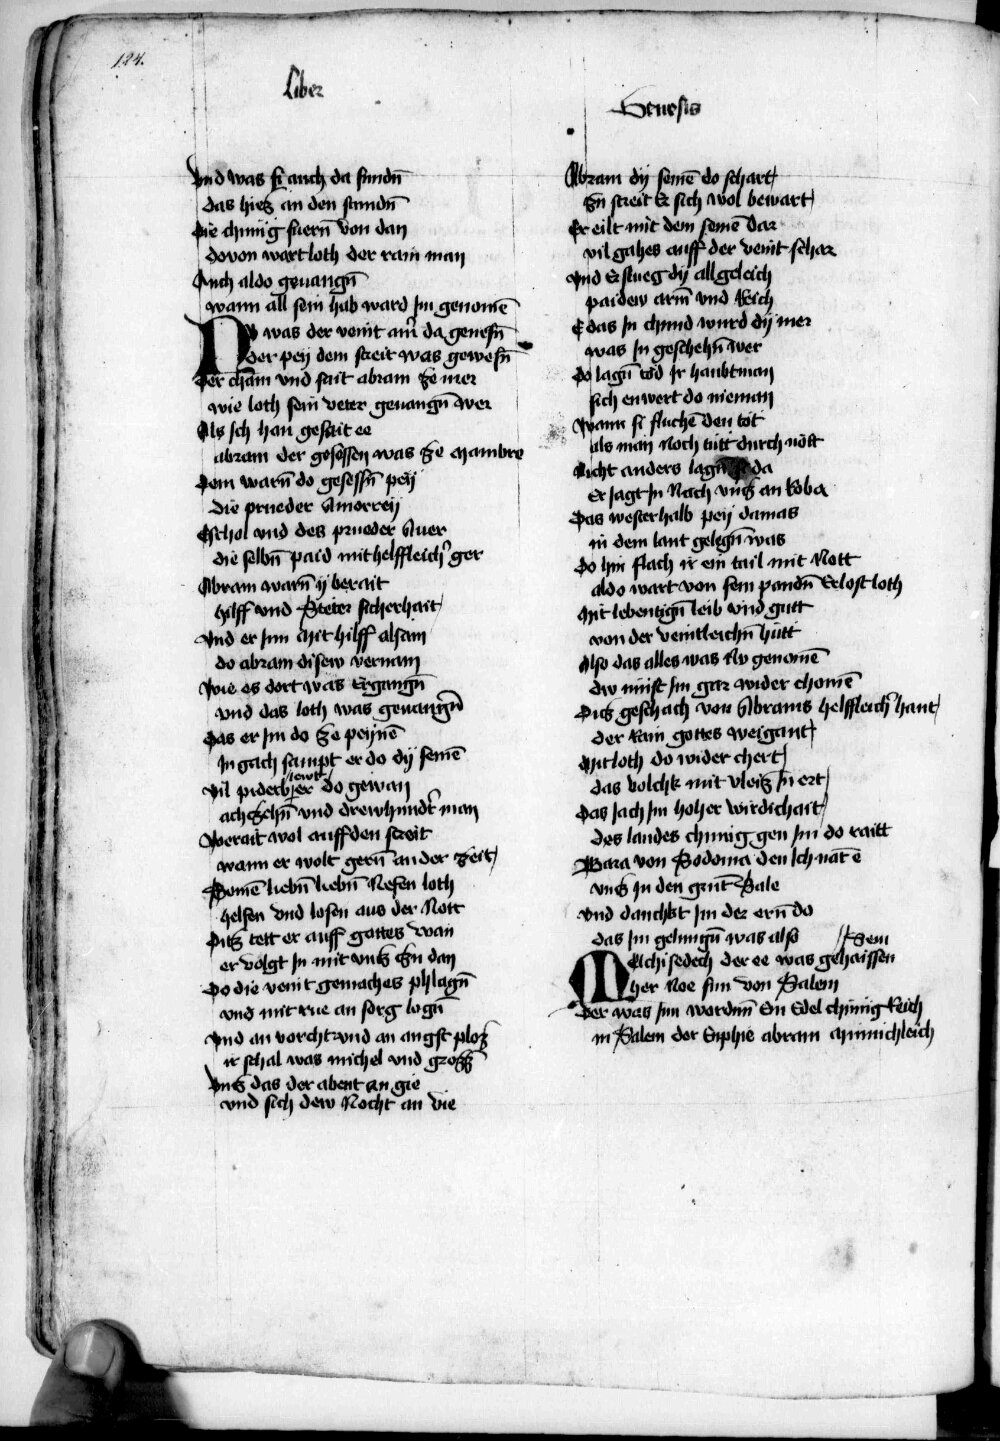 124.
Liber
Genesis
Vnd was si auch da fundn̄
das hieʒ an den stundn̄
Die chunig fuern̄ von dan
dovon wart loth der rain man
Auch aldo gevangn̄
wann all sein hab ward im genomē
Nv was der veint ain̄ da genesn̄
der pey dem streit was gewesn̄
Der cham vnd sait abram ʒe mer
wie loth sein veter gevangn̄ wer
Als ich han gesait ee
abram der gesessen was ʒe Mambre
Dem warn̄ do gesessn̄ pey
die prueder Amorrey
Eschol vnd des prueder Aner
die selbn̄ paid mit helffleich̄ ger
Abram warn̄ y berait
hilff vnd Steter sicherhait
Vnd er inn Mit hilff alsam
do abram disew vernam
Wie es dort was Ergangn̄
vnd das loth was gevangn̄
Das er im do ʒe peynē
In gach sampt er do dy seinē
Vil piderber lewt do gewan
achʒehn̄ vnd drewhundt̄ man
Werait wol auff den streit
wann er wolt gern̄ an der ʒeit
Seinē liebn̄ liebn̄ Nefen loth
helfen vnd losen aus der Nott
Ditʒ tett er auff gottes wan
er volgt in mit vntʒ ʒu dan
Do die veint gemaches phlagn̄
vnd mit rue an sorg lagn̄
Vnd an vorcht vnd an angst ploʒ
ir schal was michel vnd groʒʒ
Vntʒ das der abent an gie
vnd sich dew Nacht an vie
Abram dy seinē do schart
ʒu streit Er sich wol bewart
Er eilt mit dem seinē dar
vil gahes auff der veint schar
Vnd Er slueg dy all geleich
paidew arm̄ vnd Reich
E das In chund wurd dy mer
was In geschehn̄ wer
Do lagn̄ tod Ir haubtman
sich enwert do nieman
Wann si fluchē den tot
als man Noch tutt durch nött
Nicht anders lagn̄ si da
Er Jagt In Nach vntʒ an Koba
Das westerhalb pey damas
in dem lant gelegn̄ was
Do hin flach ir ein tail mit Nott
aldo wart von sein pandn̄ Erlost loth
Mit lebentign̄ leib vnd gutt
von der veintleichn̄ hutt
Also das alles was Nv genomē
dw must Im gar wider chomē
Ditʒ geschach von Abrams helffleich̄ hant
der Rain gottes weigant
Mit loth do wider chert
das volchk mit vleiʒ In ert
Das Jach Im hoher wirdichait
des landes chunig gen Im do raitt
Wara von Sodoma den Ich nāt ē
vntʒ In den grūt Sale
Vnd danchkt Im der ern̄ do
das Im gelungn̄ was also
Melchisedech der ee was gehaissen Sem
her Noe sun von Salem
Der was Inn wordnn̄ Ein Edel chunig Reich
in Salem der Enphie abram Minnichleich